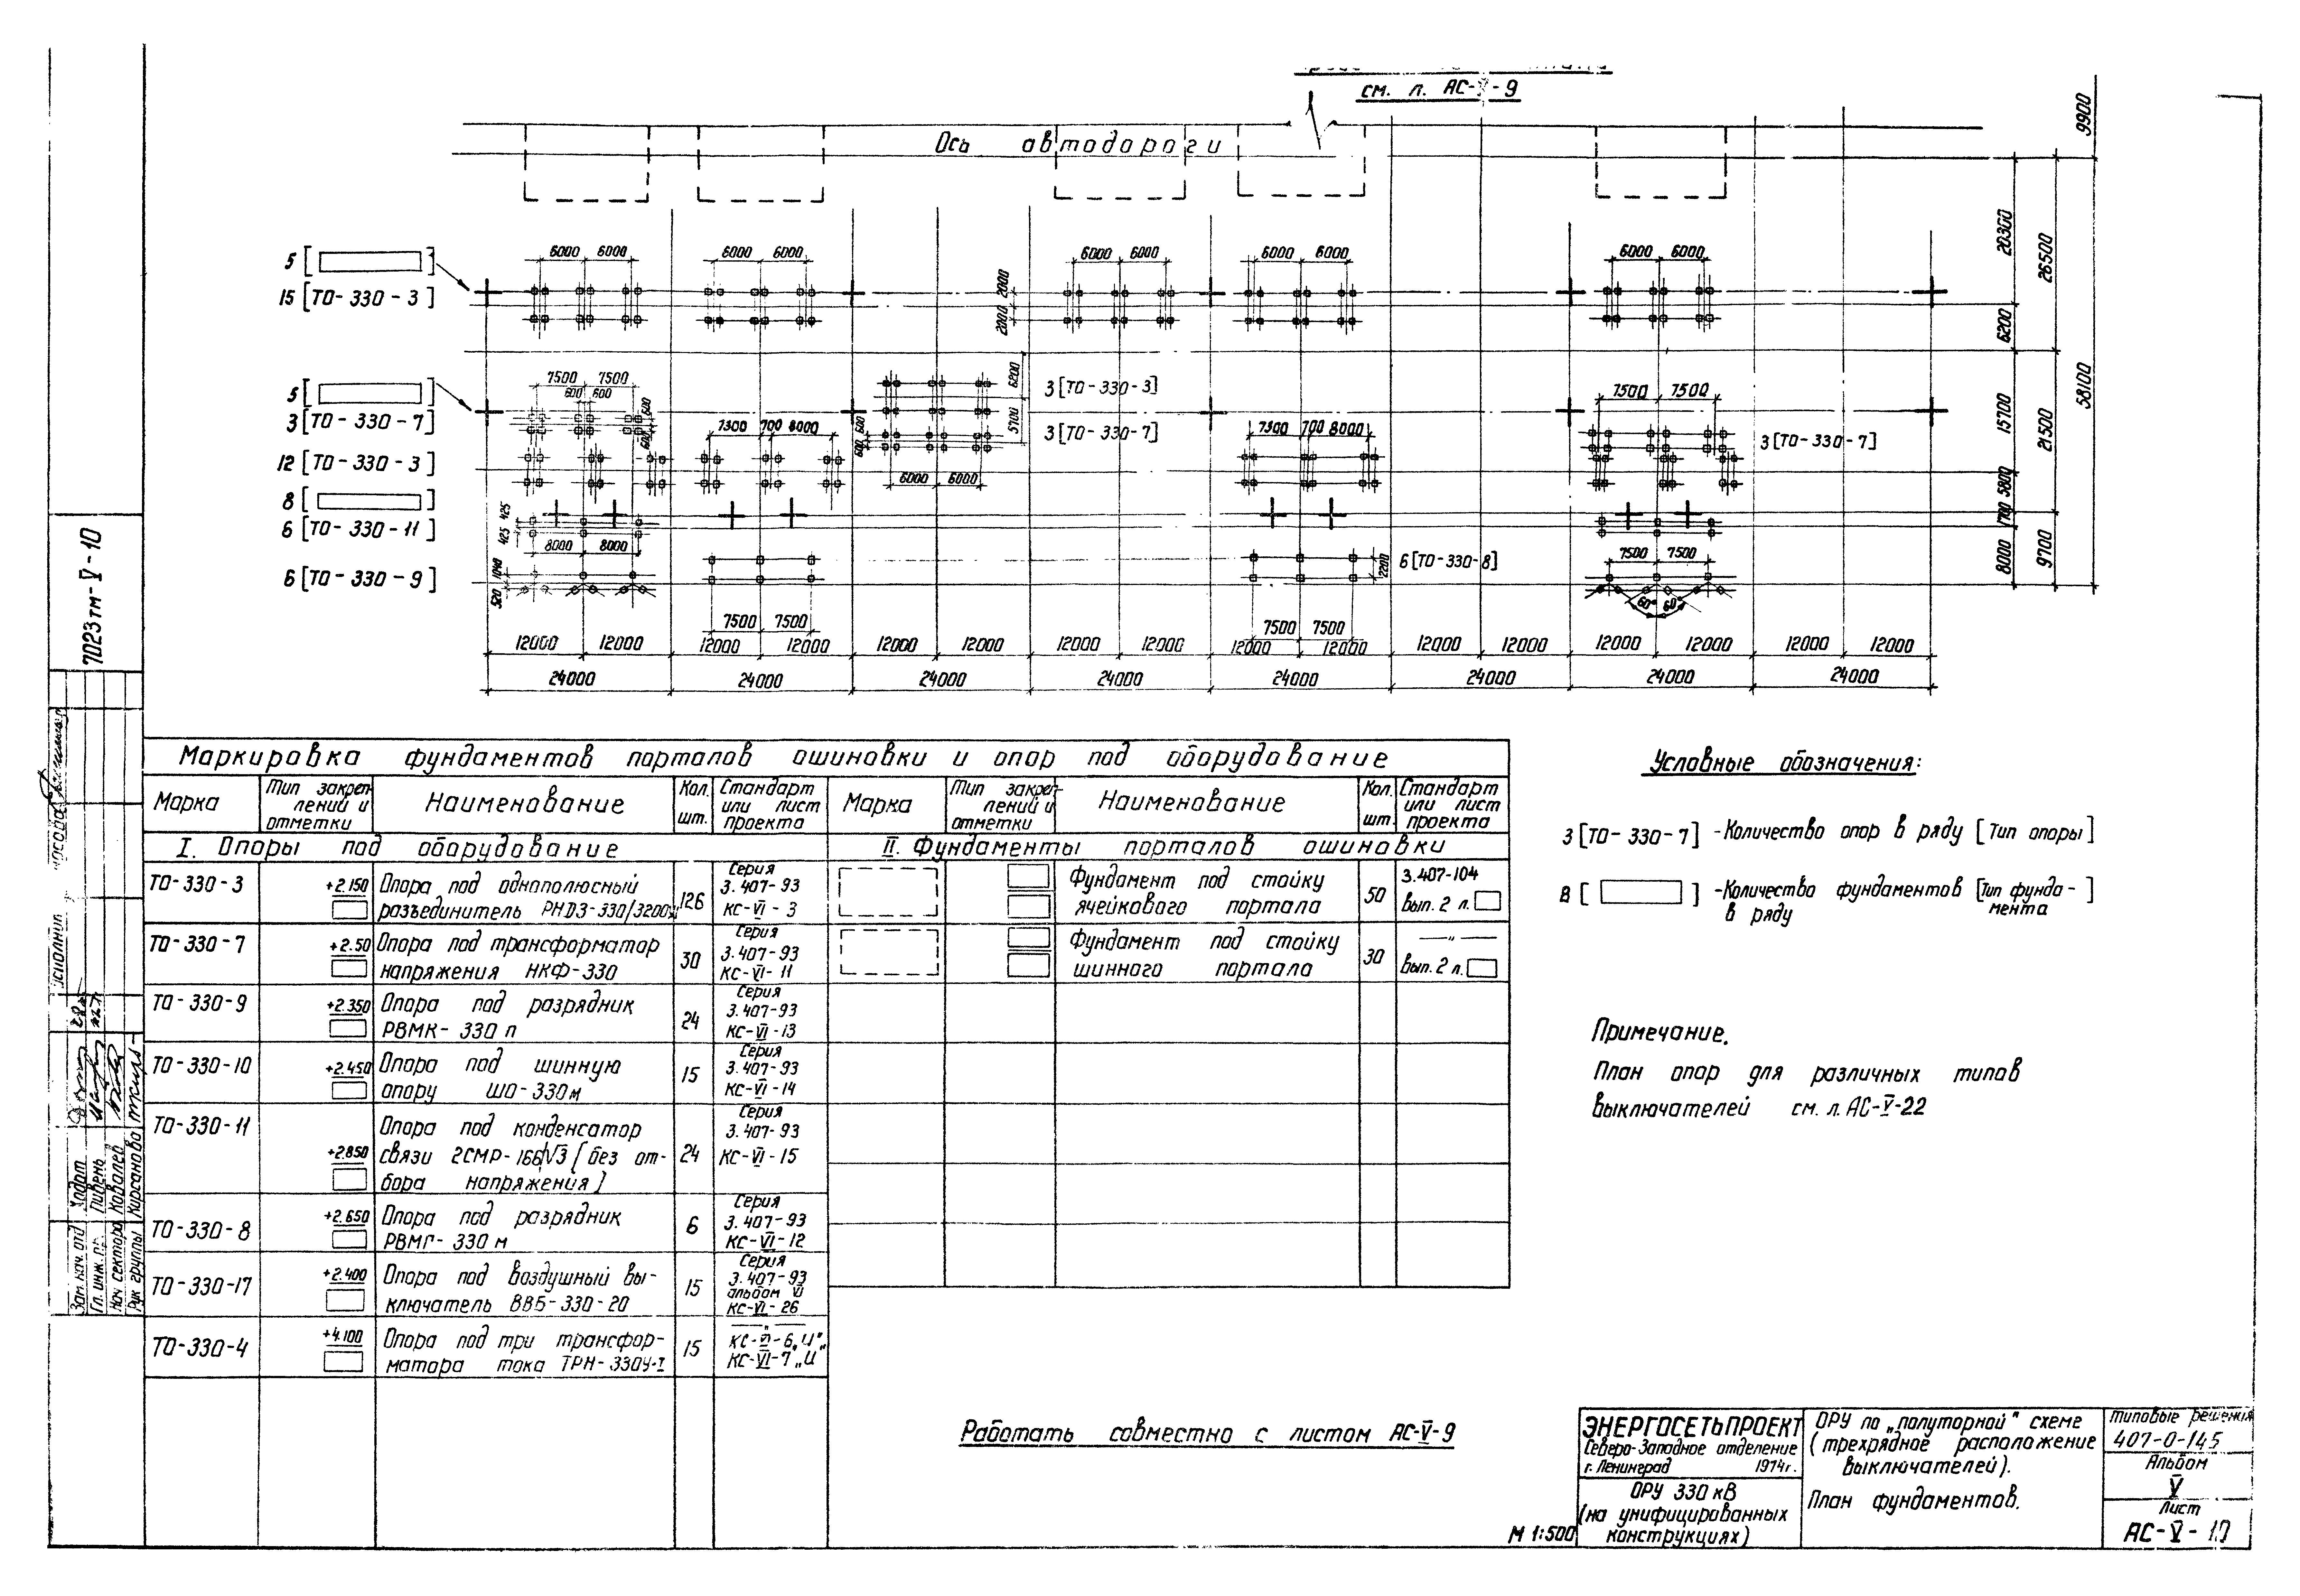 см. л. АС-V-9
Ось автодороги
9900
5 [ ]
15 [ТО-330-3]
6000 6000
6000 6000
6000 6000
6000 6000
6000 6000
2000 2000
20300
26500
6200
58100
5 [ ]
3 [ТО-330-7]
12 [ТО-330-3]
8 [ ]
6 [ТО-330-11]
6 [ТО-330-9]
7500 7500
600 600
600
600
7300 700 8000
6200
5700
600
600
3 [ТО-330-3]
3 [ТО-330-7]
6000 6000
7300 700 8000
7500 7500
3 [ТО-330-7]
15700
21500
5800
1700
8000
9700
425 425
8000 8000
1040
520
7500 7500
2200
6 [ТО-330-8]
7500 7500
7500 7500
60° 60°
12000 12000 12000 12000 12000 12000 12000 12000 12000 12000 12000 12000 12000 12000 12000 12000
24000 24000 24000 24000 24000 24000 24000 24000
7023тм-V-10
Маркировка фундаментов порталов ошиновки и опор под оборудование
Марка
Тип закреплений и отметки
Наименование
Кол. шт.
Стандарт или лист проекта
Марка
Тип закреплений и отметки
Наименование
Кол. шт.
Стандарт или лист проекта
I. Опоры под оборудование
II. Фундаменты порталов ошиновки
ТО-330-3
+2.150
Опора под однополюсный
разъединитель РНДЗ-330/3200
126
Серия
3.407-93
КС-VI-3
ТО-330-7
+2.50
Опора под трансформатор
напряжения НКФ-330
30
Серия
3.407-93
КС-VI-11
ТО-330-9
+2.350
Опора под разрядник
РВМК-330 п
24
Серия
3.407-93
КС-VI-13
ТО-330-10
+2.450
Опора под шинную
опору ШО-330м
15
Серия
3.407-93
КС-VI-14
ТО-330-11
+2.850
Опора под конденсатор
связи 2СМР-166/√3 (без от-
бора напряжения)
24
Серия
3.407-93
КС-VI-15
ТО-330-8
+2.650
Опора под разрядник
РВМГ-330 м
6
Серия
3.407-93
КС-VI-12
ТО-330-17
+2.400
Опора под воздушный вы-
ключатель ВВБ-330-20
15
Серия
3.407-93
альбом VI
КС-VI-26
ТО-330-4
+4.100
Опора под три трансфор-
матора тока ТРН-330У-I
15
—"—
КС-VI-6„И"
КС-VI-7„И"
Фундамент под стойку
ячейкового портала
50
3.407-104
Вып. 2 л.
Фундамент под стойку
шинного портала
30
—"—
Вып. 2 л.
Условные обозначения:
3 [ТО-330-7] -Количество опор в ряду [Тип опоры]
8 [ ] -Количество фундаментов [Тип фунда-
в ряду мента]
Примечание.
План опор для различных типов
выключателей см. л. АС-V-22
Работать совместно с листом АС-V-9
Зам. нач. отд.
Гл. инж. пр.
Пивень
Нач. сектора
Ковалев
Рук группы
Кирсанова
ЭНЕРГОСЕТЬПРОЕКТ
Северо-Западное отделение
г. Ленинград 1974г.
ОРУ 330 кВ
(на унифицированных
конструкциях)
М 1:500
ОРУ по „полуторной" схеме
(трехрядное расположение
выключателей).
План фундаментов.
Типовые решения
407-0-145
Альбом
V
Лист
АС-V-10